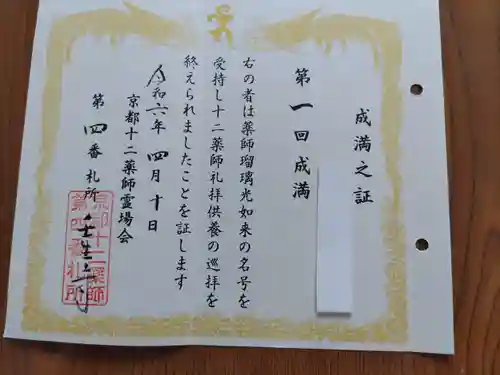 成満之証
第一回成満
右の者は薬師瑠璃光如来の名号を
受持し十二薬師礼拝供養の巡拝を
終えられましたことを証します
令和六年四月十日
京都十二薬師霊場会
第四番札所 壬生寺
京都十二薬師
第四番札所